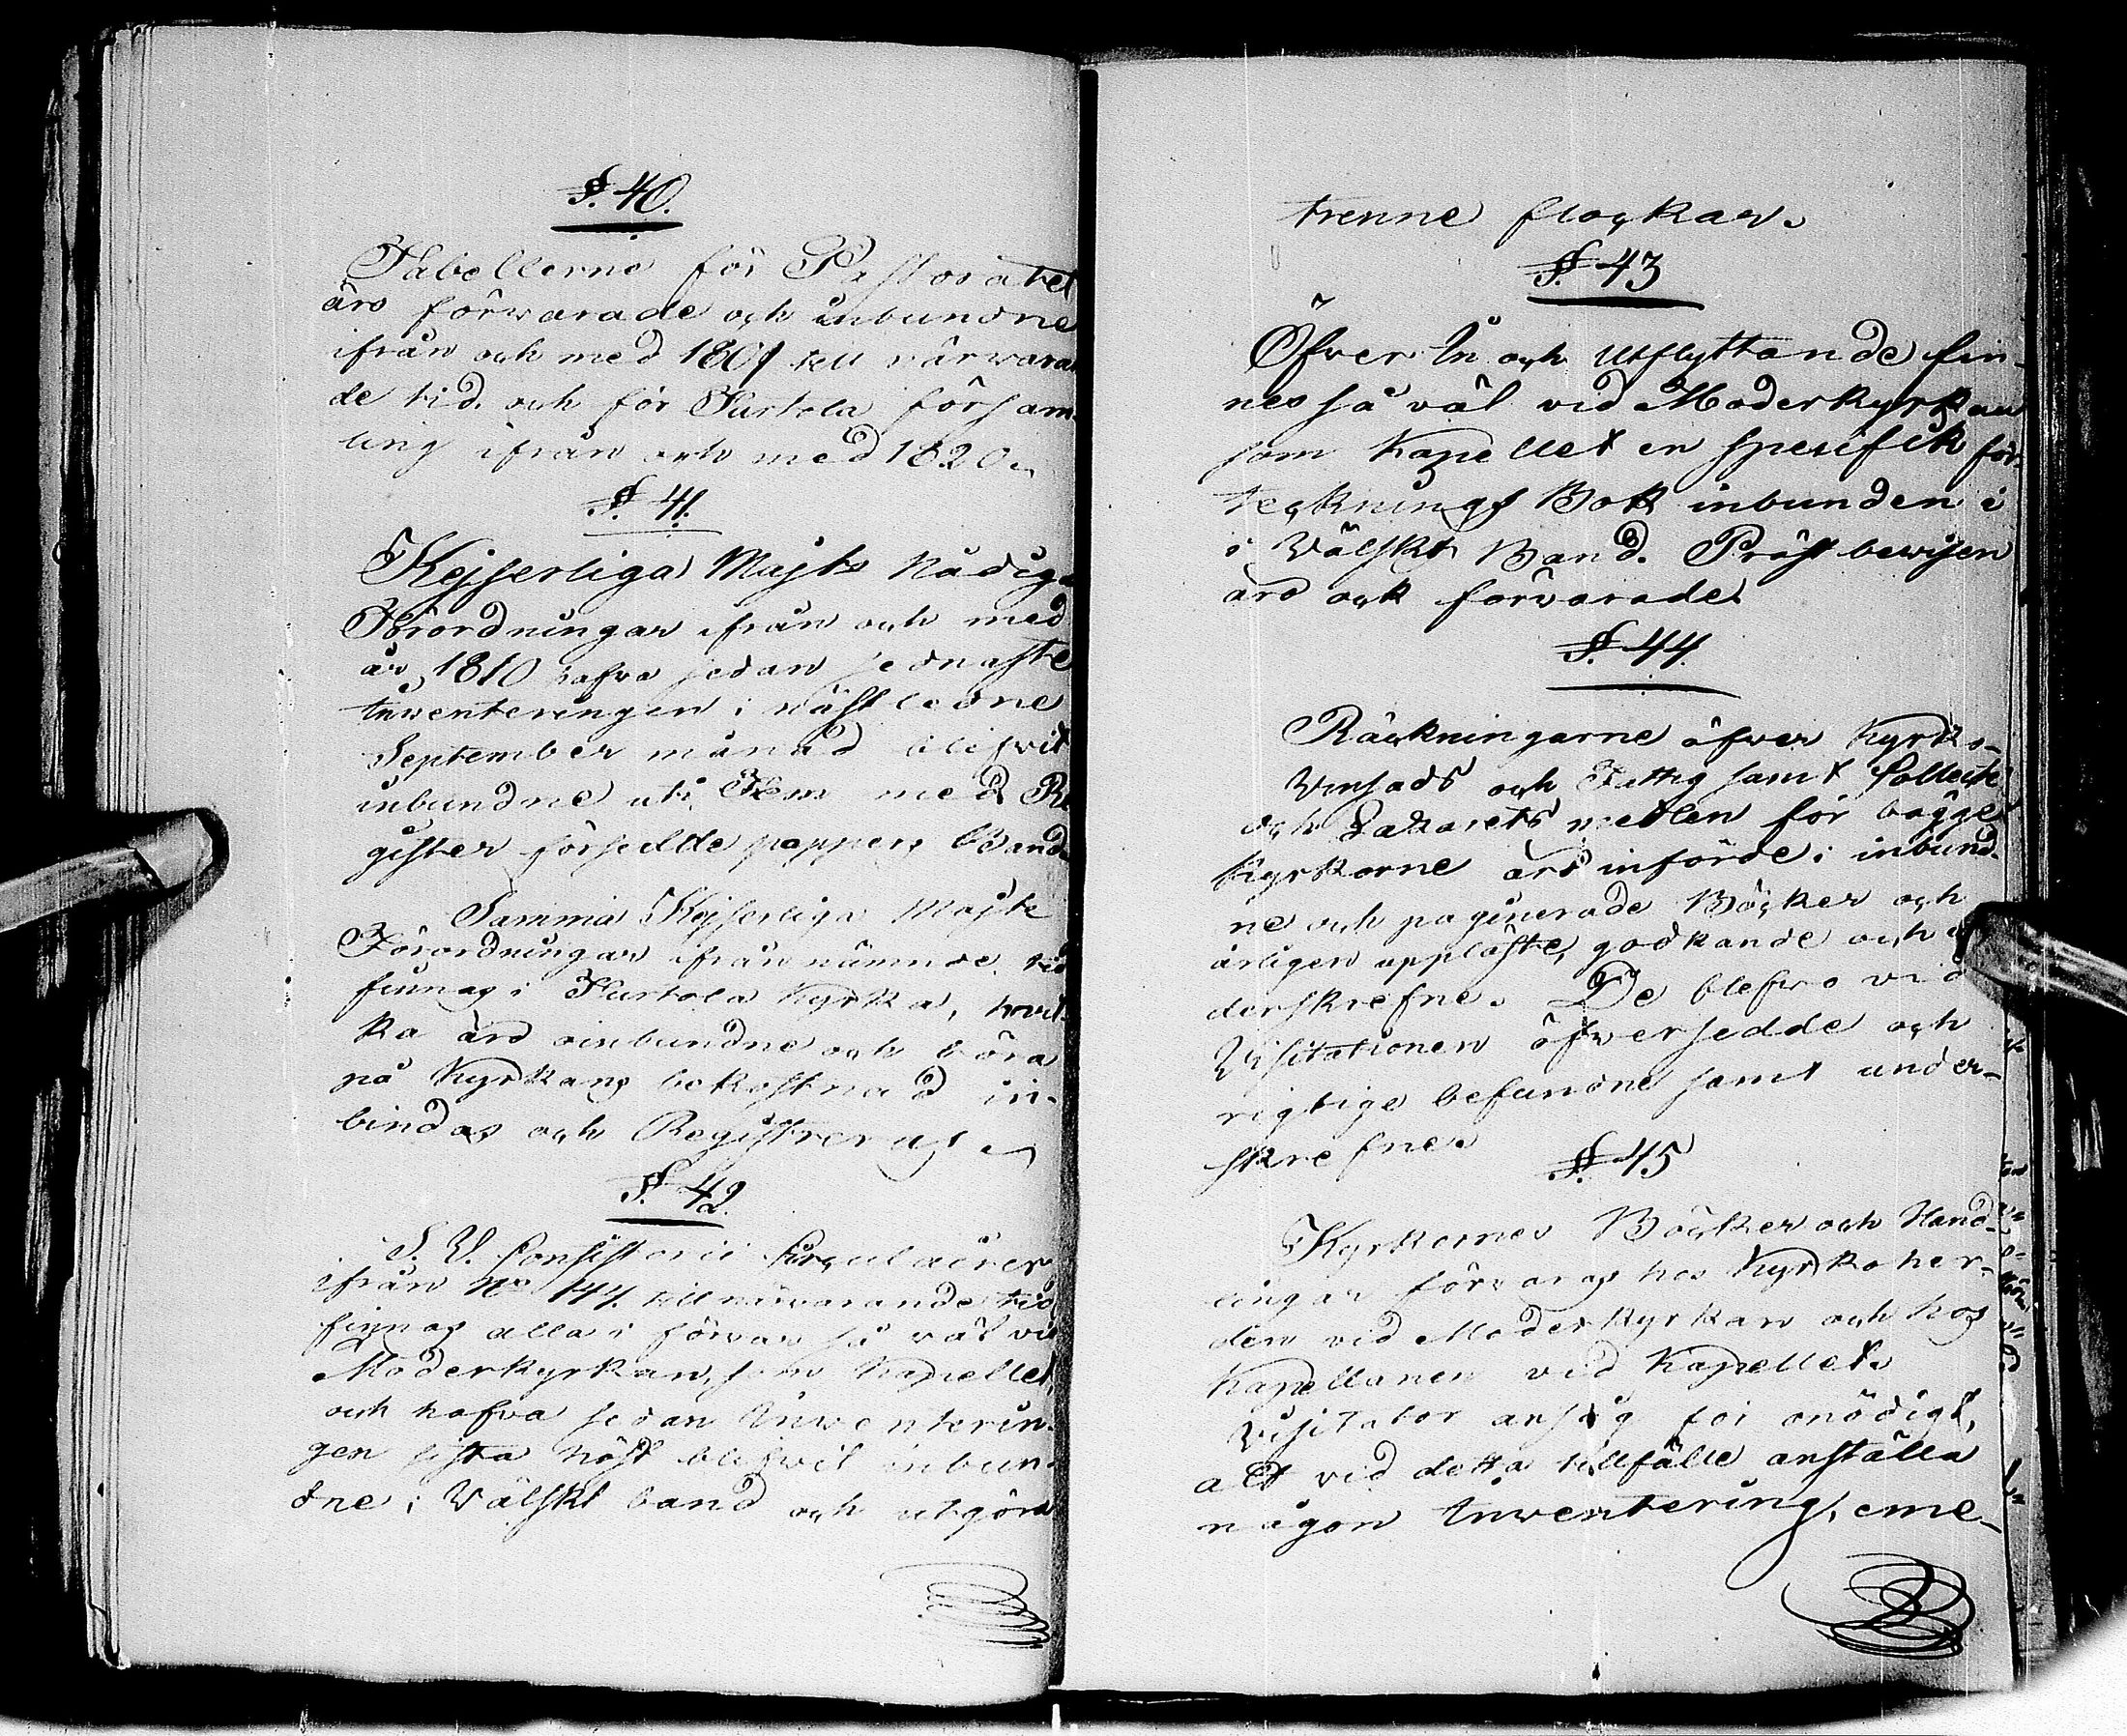 §. 40.
Tabellerne för Pastoratet
äro förvarade och inbundne
ifrån och med 1801 till närwaran
de tid. och för Turtola församl
ling ifrån och med 1820.
§. 41.
Kejserliga Majts Nådiga
Förordningar ifrån och med
år 1810 hafva sedan sednaste
Inwenteringen i nästledne
September månad blifvit
inbundne uti Fem med Re
gister försedde pappers Band.
Samma Kejserliga Majts
Förordningar ifrån nämnde tid
finnas i Turtola Kyrka, hvil-
ka äro oinbundne och böra
på Kyrkans bekostnad in-
bindas och Registreras.
§. 42.
S. V. Consistorii Circulairer
ifrån No 144. till närvarande tid
finnas alla i förvar så väl vid
Moderkyrkan, som Kapellet,
och hafva sedan Inwenterin-
gen sista höst blifvit inbun-
dne i Välskt band och utgöra
trenne flockar.
§. 43
Öfver In och Utflyttande fin-
nes så väl vid Moderkyrkan
som Kapellet en spesifik för-
tecknings Bok inbunden i
i Välskt Band. Prästbewisen
äro ock förvarade.
§. 44.
Räckningarne öfver Kyrko-
Vinsads och Fattig samt Collect
och Lazaretts medlen för bägge
Kyrkorne äro införde i inbund-
ne och paginerade Böcker och
årligen uppläste, godkände och un
derskrefne. De blefvo vid
Visitationen öfversedde och
rigtige befundne samt under-
skrefne.
§. 45
Kyrkornes Böcker och Hand-
lingar förvaras hos Kyrkoher-
den vid Moderkyrkan och hos
Kapellanen vid Kapellet.
Visitator ansåg för onödigt,
att vid detta tillfälle anställa
någon Inwentering, eme-